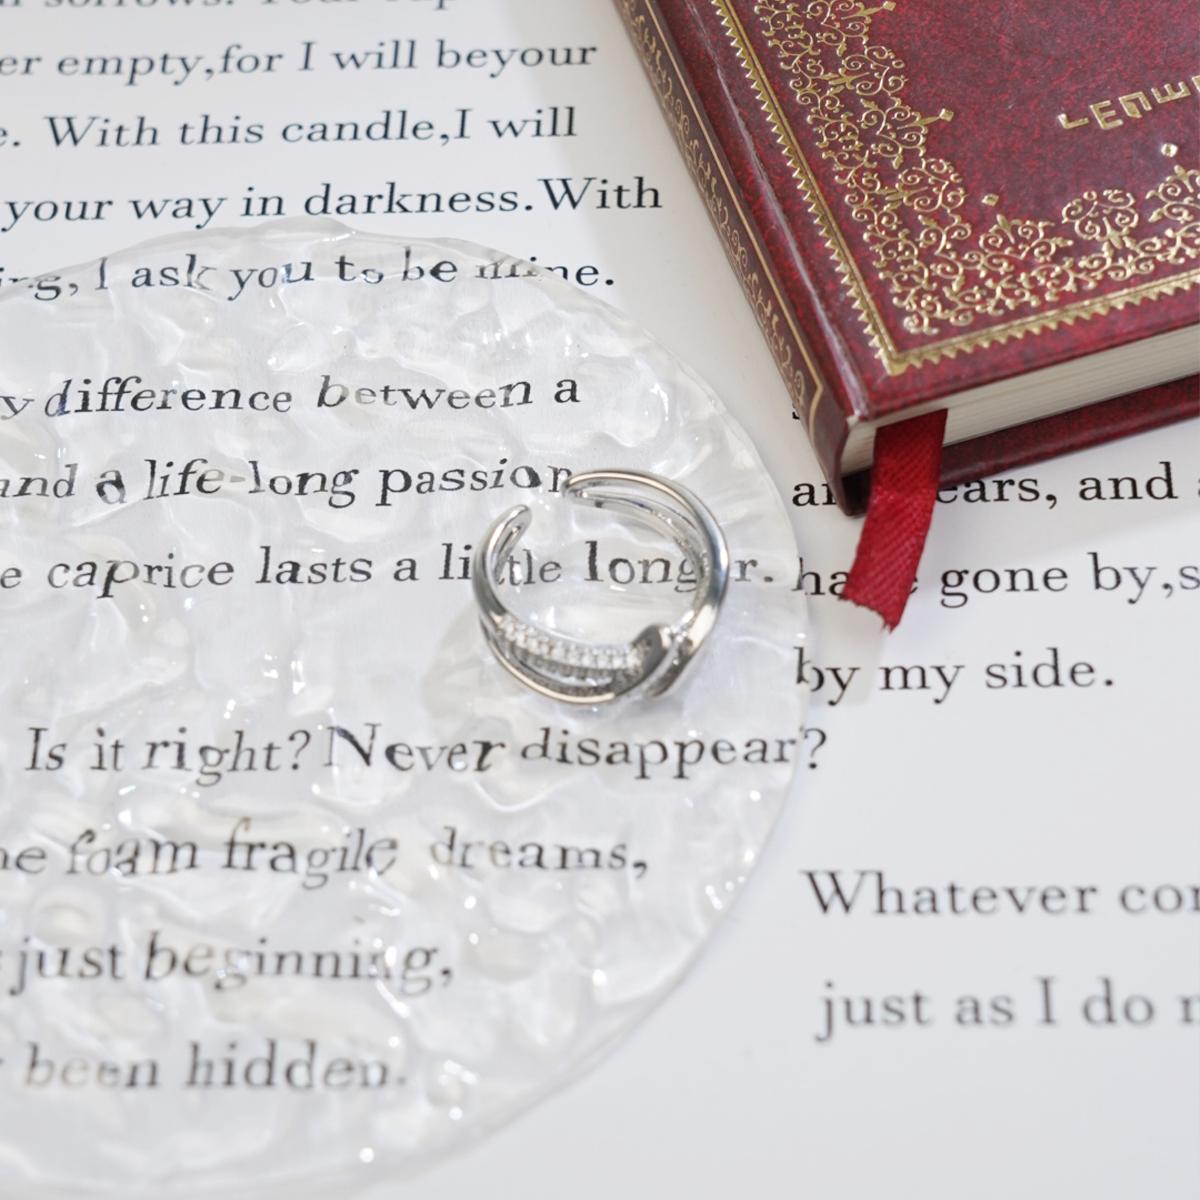 sorrows. Your cup
er empty,for I will beyour
e. With this candle,I will
your way in darkness.With
I ask you to be mine.
y difference between a
and a life-long passion
e caprice lasts a little longer.
Is it right? Never disappear?
foam fragile dreams,
just beginning,
been hidden.
ears, and
gone by,s
by my side.
Whatever
just as I do